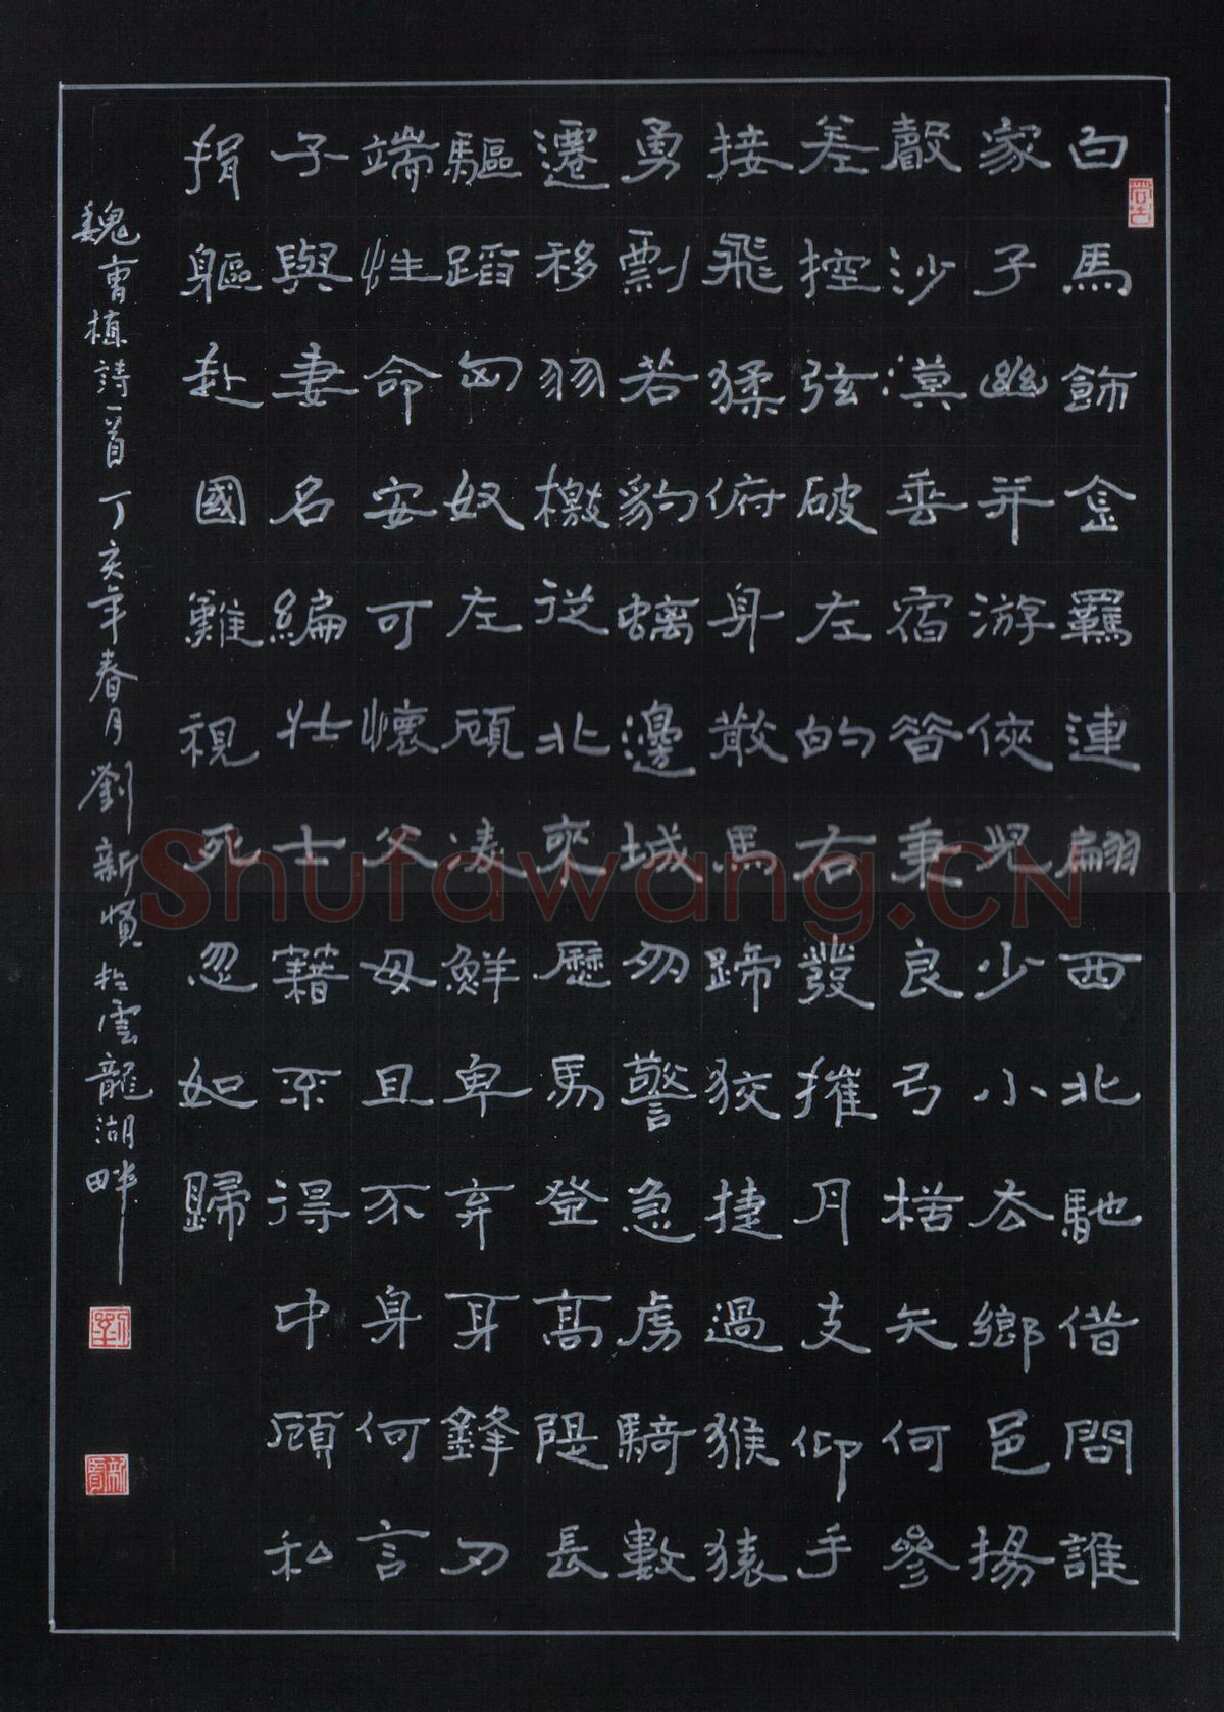 白馬飾金羈連翩西北馳借問誰
家子幽并游俠兒少小去鄉邑揚
聲沙漠垂宿昔秉良弓楛矢何參
差控弦破左的右發摧月支仰手
接飛猱俯身散馬蹄狡捷過猴猿
勇剽若豹螭邊城多警急虜騎數
遷移羽檄從北來厲馬登高隄長
驅蹈匈奴左顧凌鮮卑弃身鋒刃
端性命安可懷父母且不身何言
子與妻名編壯士籍不得中顧私
捐軀赴國難視死忽如歸
魏曹植詩一首丁亥年春月劉新賢於雲龍湖畔
新賢
Shufawang.CN